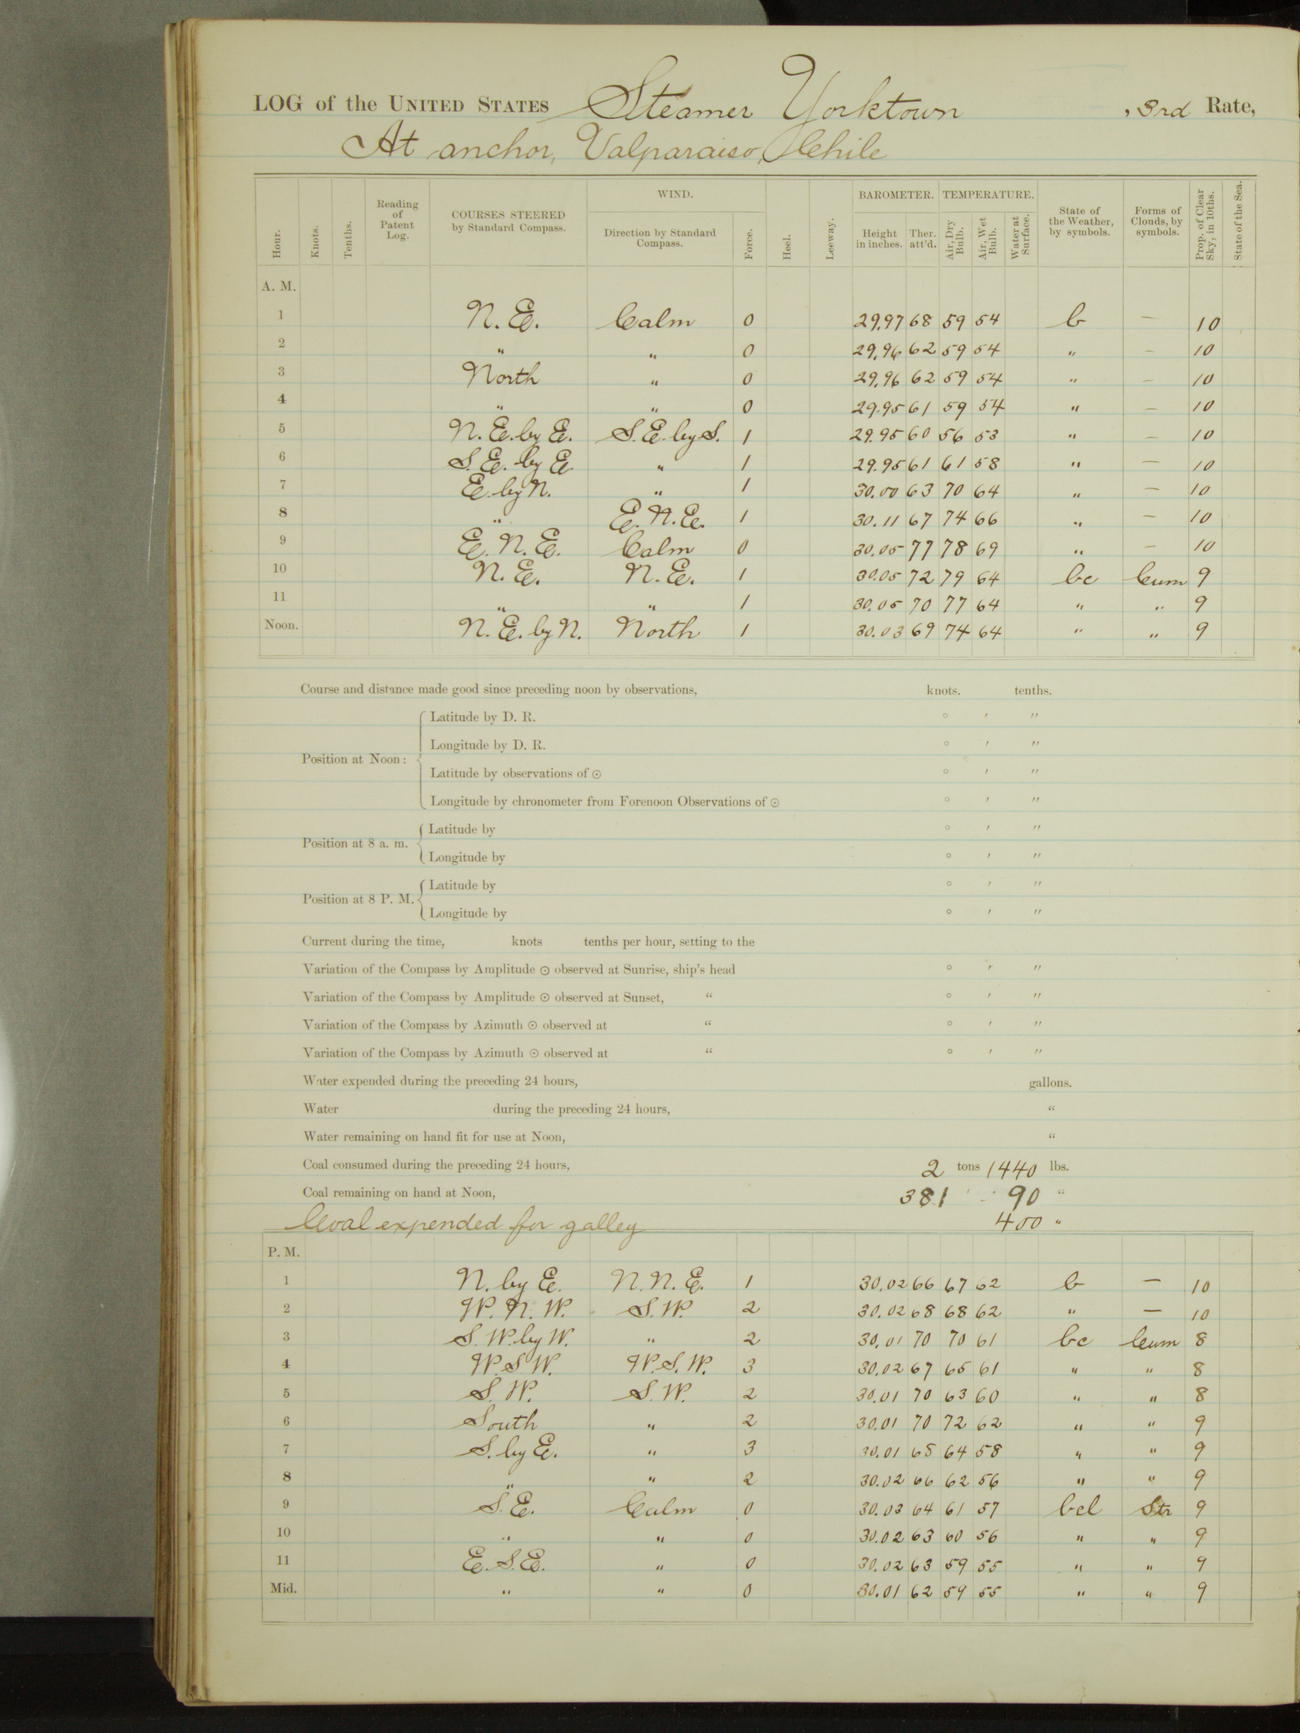 LOG of the UNITED STATES Steamer Yorktown , 3rd Rate,
At anchor, Valparaiso, Chile
Hour. Knots. Tenths. Reading of Patent Log. COURSES STEERED by Standard Compass. WIND. Direction by Standard Compass. Force. Heel. Leeway. BAROMETER. Height in inches. Ther. att'd. TEMPERATURE. Air, Dry Bulb. Air, Wet Bulb. Water at Surface. State of the Weather, by symbols. Forms of Clouds, by symbols. Prop. of Clear Sky, in 10ths. State of the Sea.
A. M.
1 N. E. Calm 0 29.97 68 59 54 b — 10
2 " " 0 29.96 62 59 54 " — 10
3 North " 0 29.96 62 59 54 " — 10
4 " " 0 29.95 61 59 54 " — 10
5 N. E. by E. S. E. by S. 1 29.95 60 56 53 " — 10
6 S. E. by E. " 1 29.95 61 61 58 " — 10
7 E. by N. " 1 30.00 63 70 64 " — 10
8 " E. N. E. 1 30.11 67 74 66 " — 10
9 E. N. E. Calm 0 30.05 77 78 69 " — 10
10 N. E. N. E. 1 30.05 72 79 64 bc Cum 9
11 " " 1 30.05 70 77 64 " " 9
Noon. N. E. by N. North 1 30.03 69 74 64 " " 9
Course and distance made good since preceding noon by observations, knots. tenths.
Position at Noon: Latitude by D. R. ° ′ ″
Longitude by D. R. ° ′ ″
Latitude by observations of ⊙ ° ′ ″
Longitude by chronometer from Forenoon Observations of ⊙ ° ′ ″
Position at 8 a. m. Latitude by ° ′ ″
Longitude by ° ′ ″
Position at 8 P. M. Latitude by ° ′ ″
Longitude by ° ′ ″
Current during the time, knots tenths per hour, setting to the
Variation of the Compass by Amplitude ⊙ observed at Sunrise, ship's head ° ′ ″
Variation of the Compass by Amplitude ⊙ observed at Sunset, " ° ′ ″
Variation of the Compass by Azimuth ⊙ observed at " ° ′ ″
Variation of the Compass by Azimuth ⊙ observed at " ° ′ ″
Water expended during the preceding 24 hours, gallons.
Water during the preceding 24 hours, "
Water remaining on hand fit for use at Noon, "
Coal consumed during the preceding 24 hours, 2 tons 1440 lbs.
Coal remaining on hand at Noon, 381 " 90 "
Coal expended for galley 400 "
P. M.
1 N. by E. N. N. E. 1 30.02 66 67 62 b — 10
2 W. N. W. S. W. 2 30.02 68 68 62 " — 10
3 S. W. by W. " 2 30.01 70 70 61 bc Cum 8
4 W. S. W. W. S. W. 3 30.02 67 65 61 " " 8
5 S. W. S. W. 2 30.01 70 63 60 " " 8
6 South " 2 30.01 70 72 62 " " 9
7 S. by E. " 3 30.01 68 64 58 " " 9
8 " " 2 30.02 66 62 56 " " 9
9 S. E. Calm 0 30.03 64 61 57 bcl Str 9
10 " " 0 30.02 63 60 56 " " 9
11 E. S. E. " 0 30.02 63 59 55 " " 9
Mid. " " 0 30.01 62 59 55 " " 9